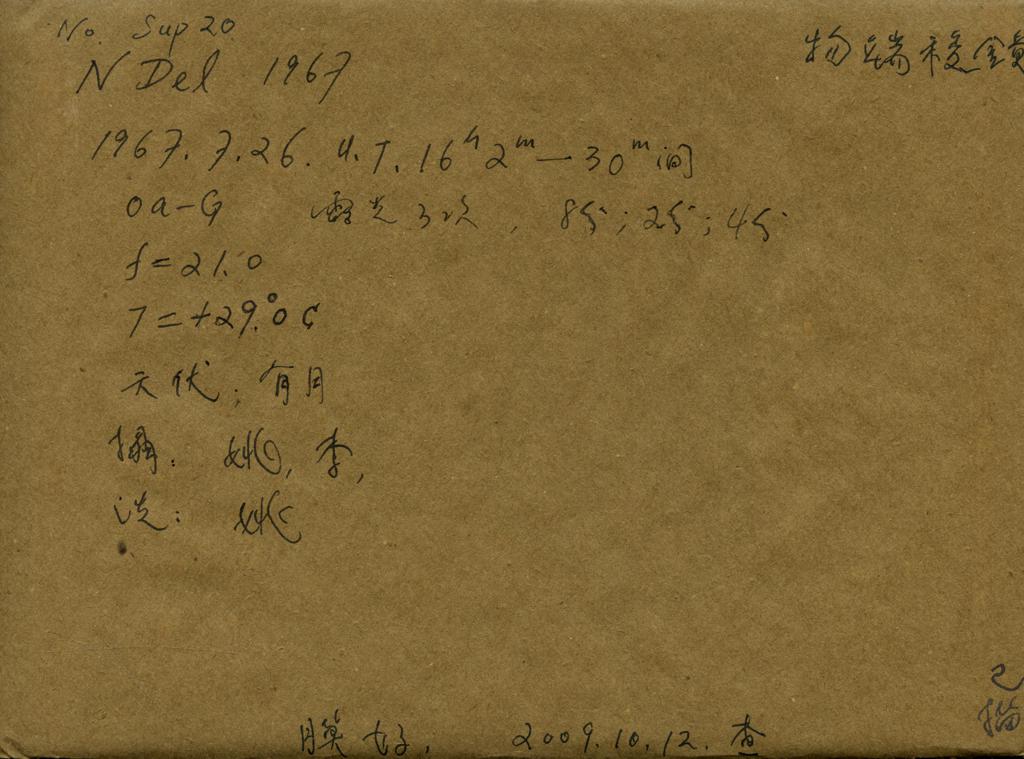 No. Sup 20
物端棱鏡
N Del 1967
1967. 7. 26. U.T. 16ʰ 2ᵐ — 30ᵐ间
Oa-G 露光3次, 8分; 2分; 4分
f = 21.0
T = +29.°0 C
天伏; 有月
攝: 姚, 李,
洗: 姚
已
描
膜好. 2009.10.12. 查